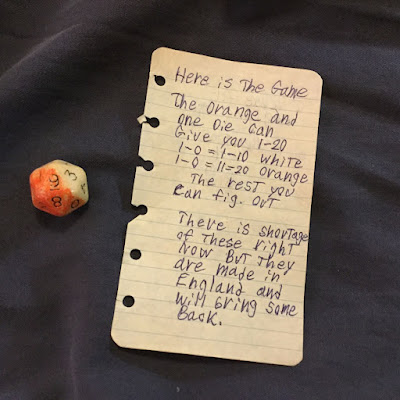 Here is The Game
The orange and
one Die can
Give you 1-20
1-0 = 1-10 white
1-0 = 11-20 orange
The rest you
can fig. out
There is shortage
of These right
now But They
are made in
England and
will bring some
Back.
9
3
8